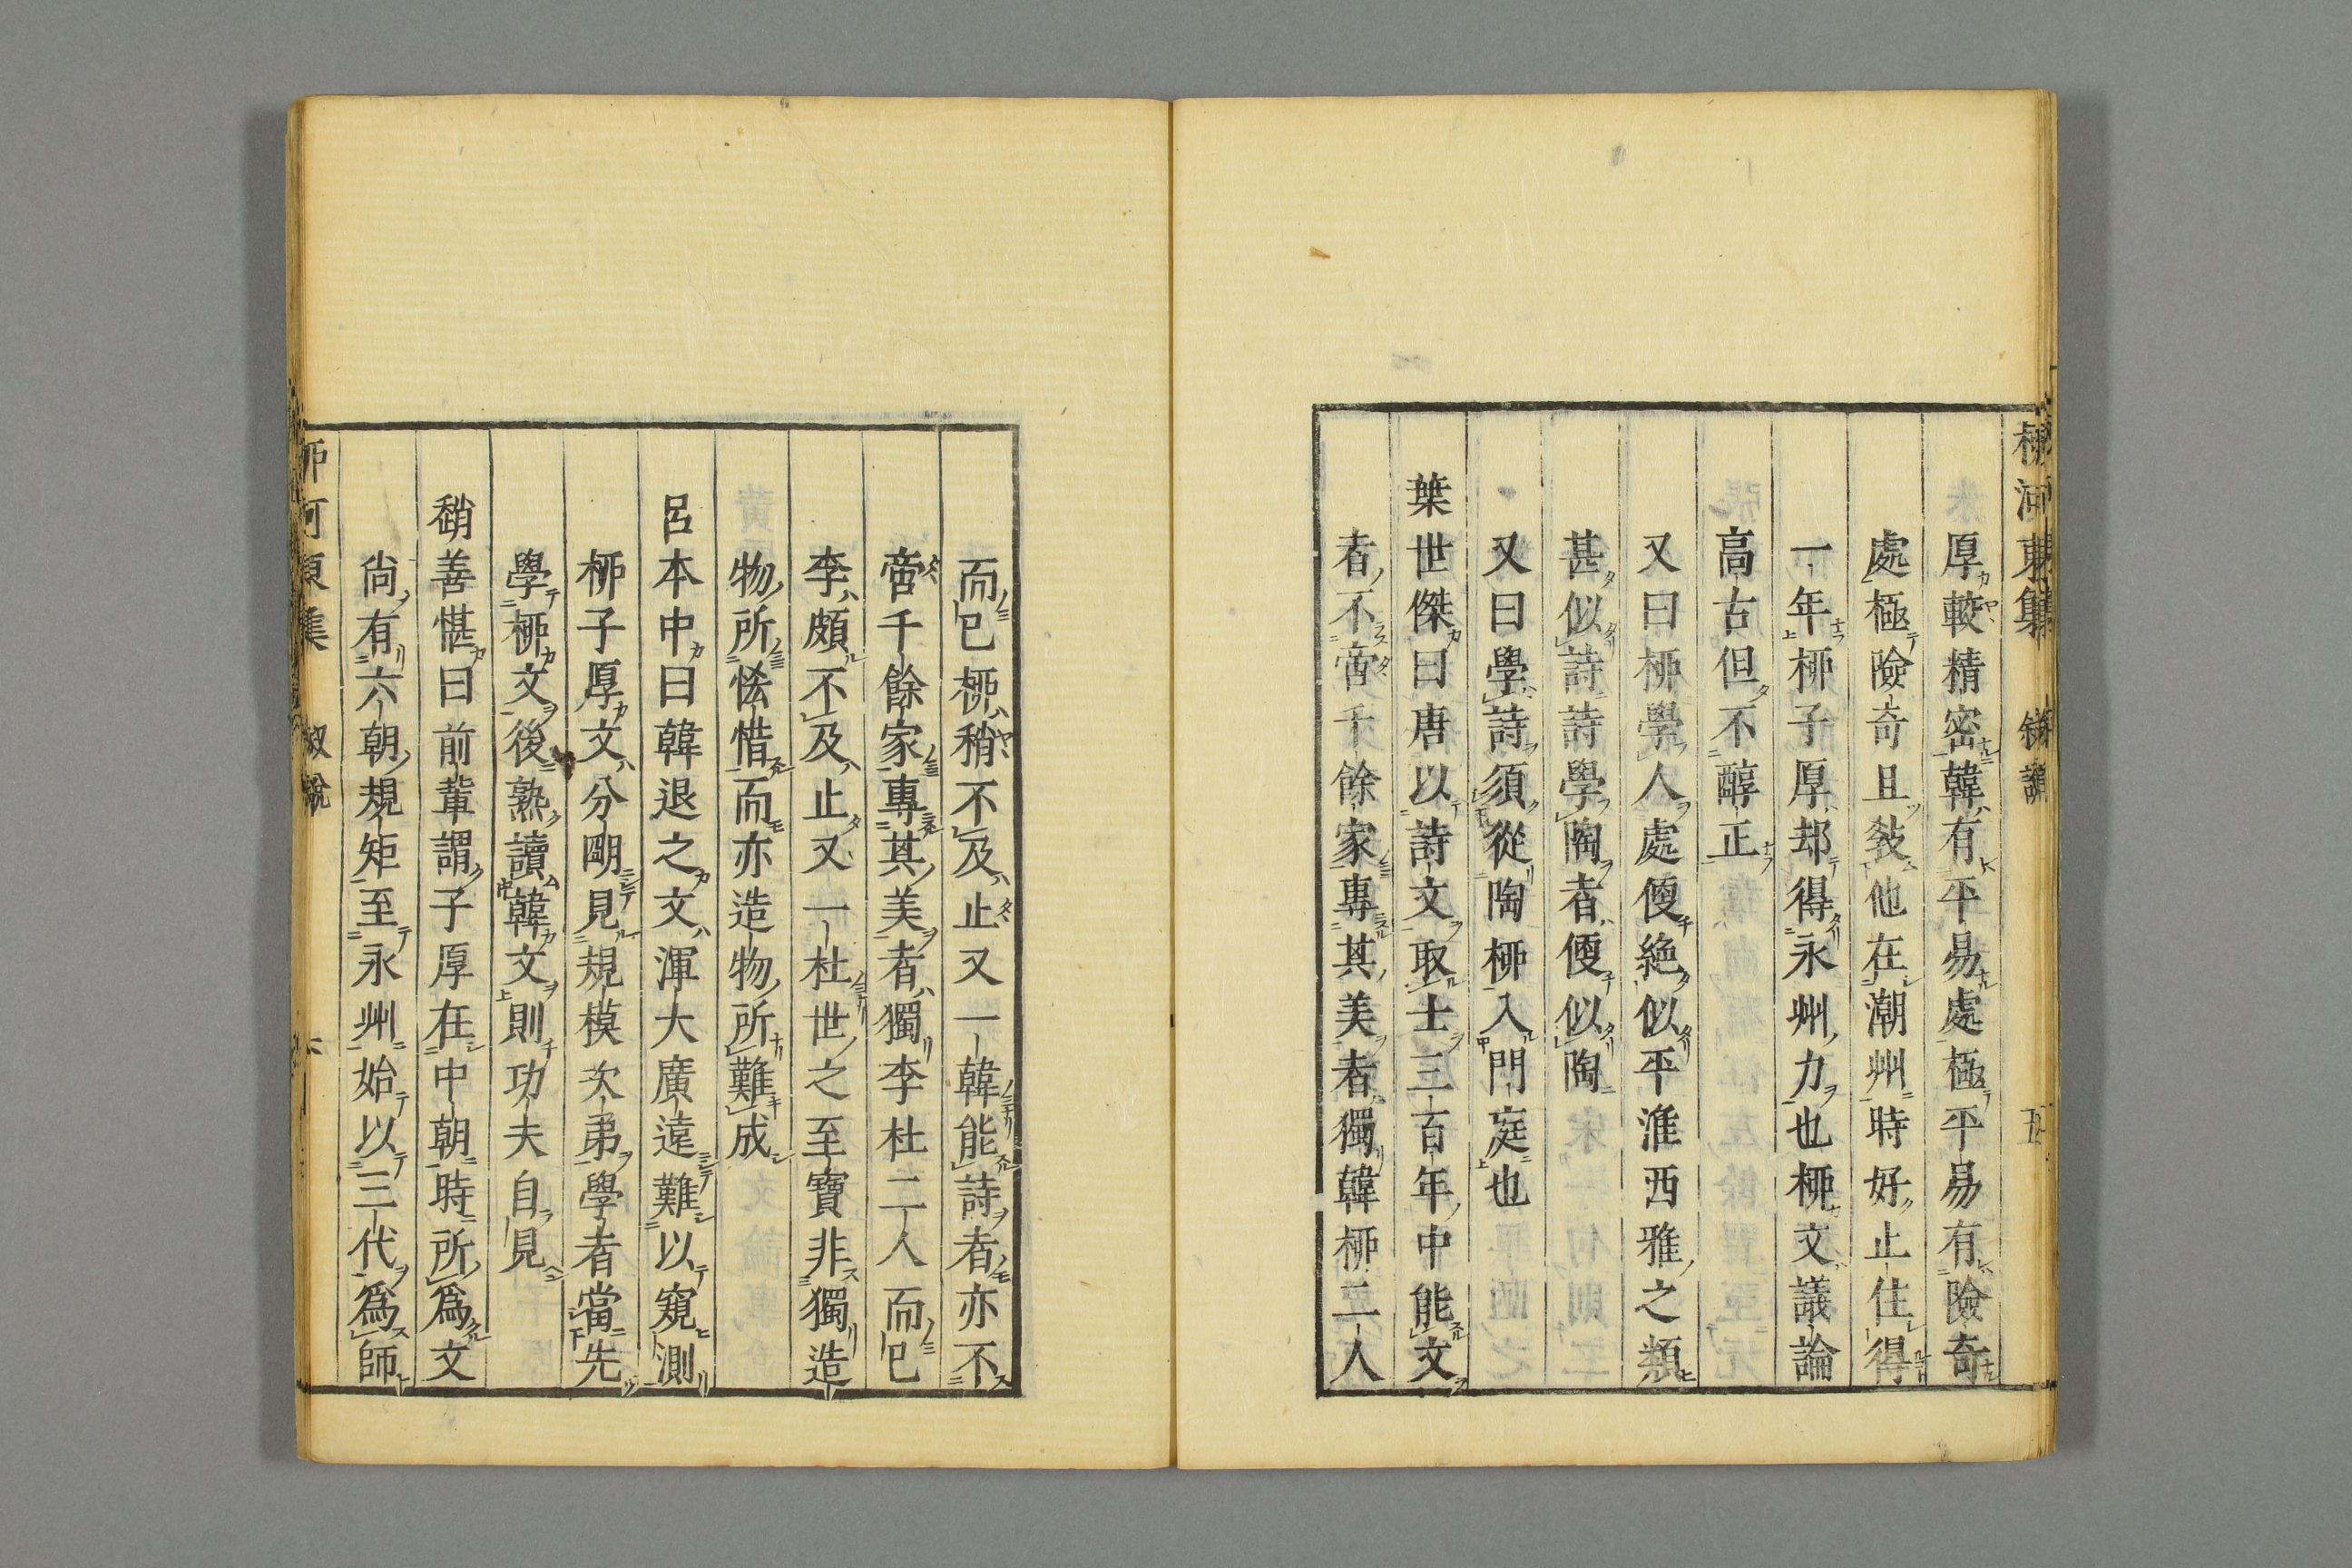 柳河東集 叙說 五
厚較精密韓有平易處極平易有險奇
處極險奇且敎他在潮州時好止住得
一年柳子厚却得永州力也柳文議論
高古但不醇正
又曰柳學人處便絶似平淮西雅之類
甚似詩詩學陶者便似陶
又曰學詩須從陶柳入門庭也
葉世傑曰唐以詩文取士三百年中能文
者不啻千餘家專其美者獨韓柳二人
而已柳稍不及止又一韓能詩者亦不
啻千餘家專其美者獨李杜二人而已
李頗不及止又一杜世之至寶非獨造
物所恡惜而亦造物所難成
呂本中曰韓退之文渾大廣遠難以窺測
柳子厚文分明見規模次弟學者當先
學柳文後熟讀韓文則功夫自見
嵇善愖曰前輩謂子厚在中朝時所爲文
尙有六朝規矩至永州始以三代爲師
柳河東集 叙說 六